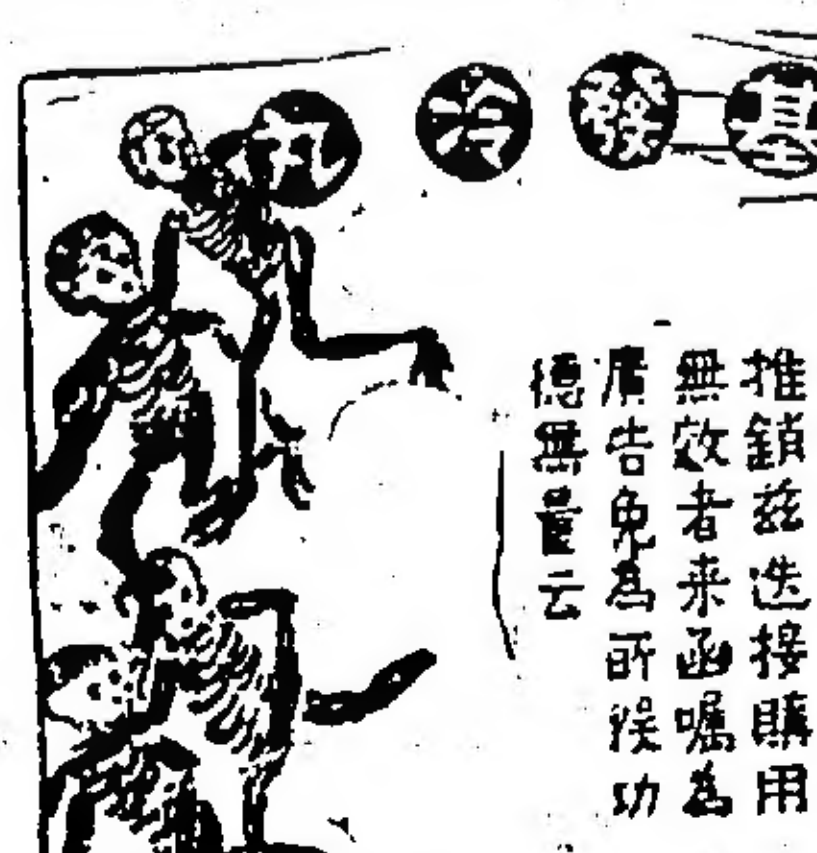 基發冷丸
推銷茲迭接購用
無效者来函嘱為
廣告免為所误功
德無量云